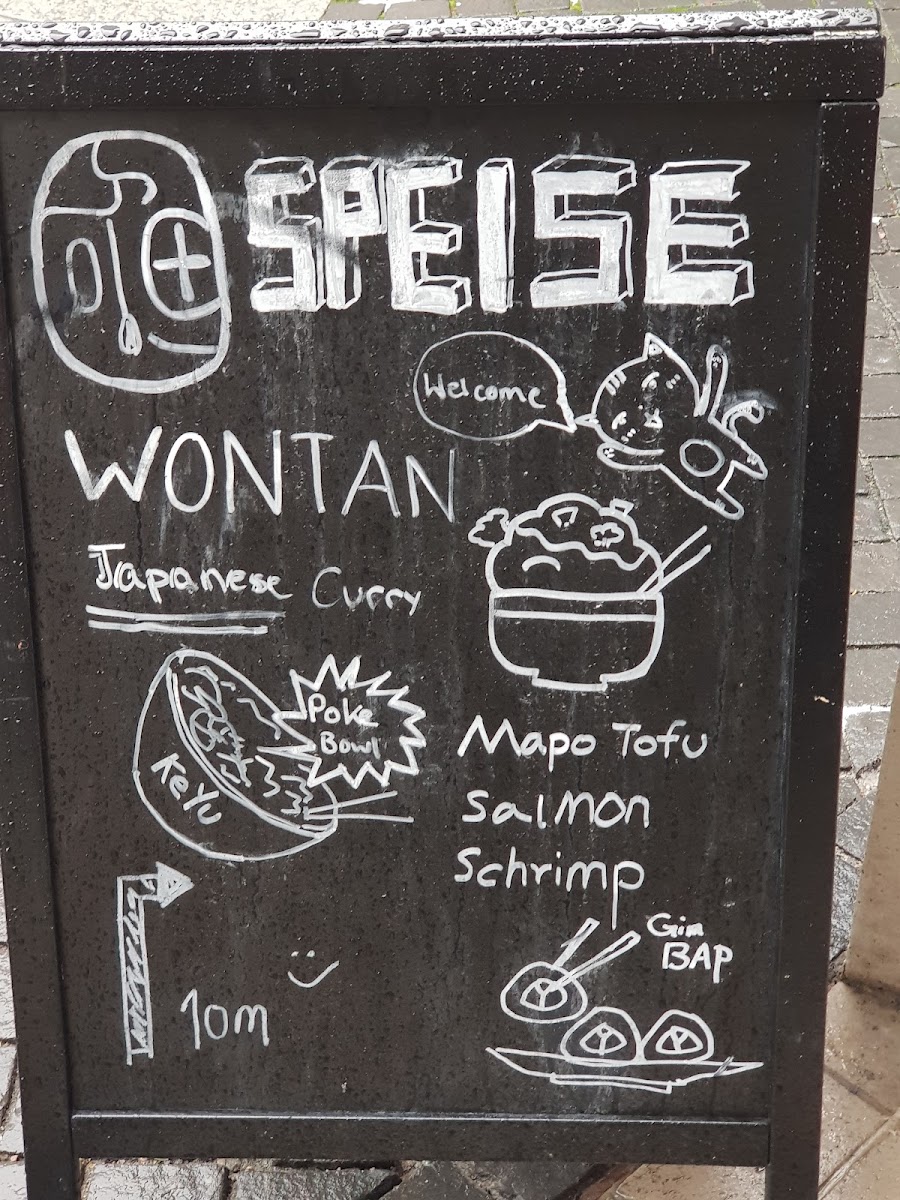 SPEISE
Welcome
WONTAN
Japanese Curry
Poke
Bowl
Mapo Tofu
Salmon
Schrimp
Gim
BAP
10m